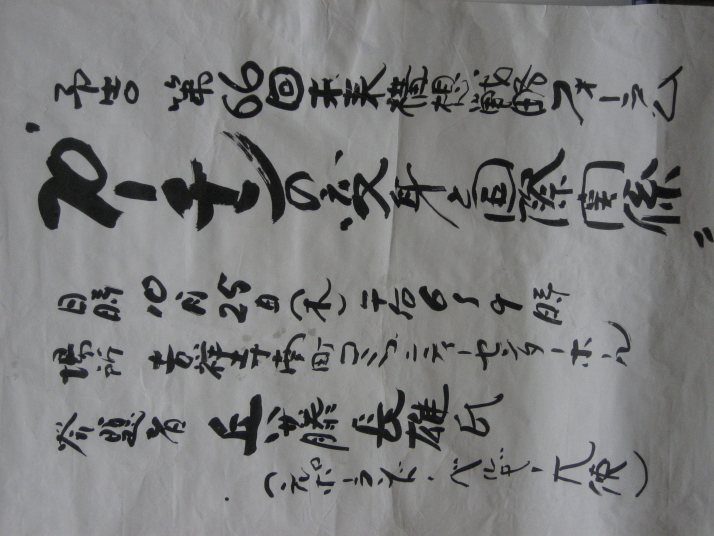 予告 第66回未来構想戦略フォーラム
〝プーチンの変身と国際関係〟
日時 10月25日(水)午后6〜9時
場所 吉祥寺南町コミュニティーセンターホール
発題者 兵藤長雄氏
(元ポーランド・ベルギー大使)